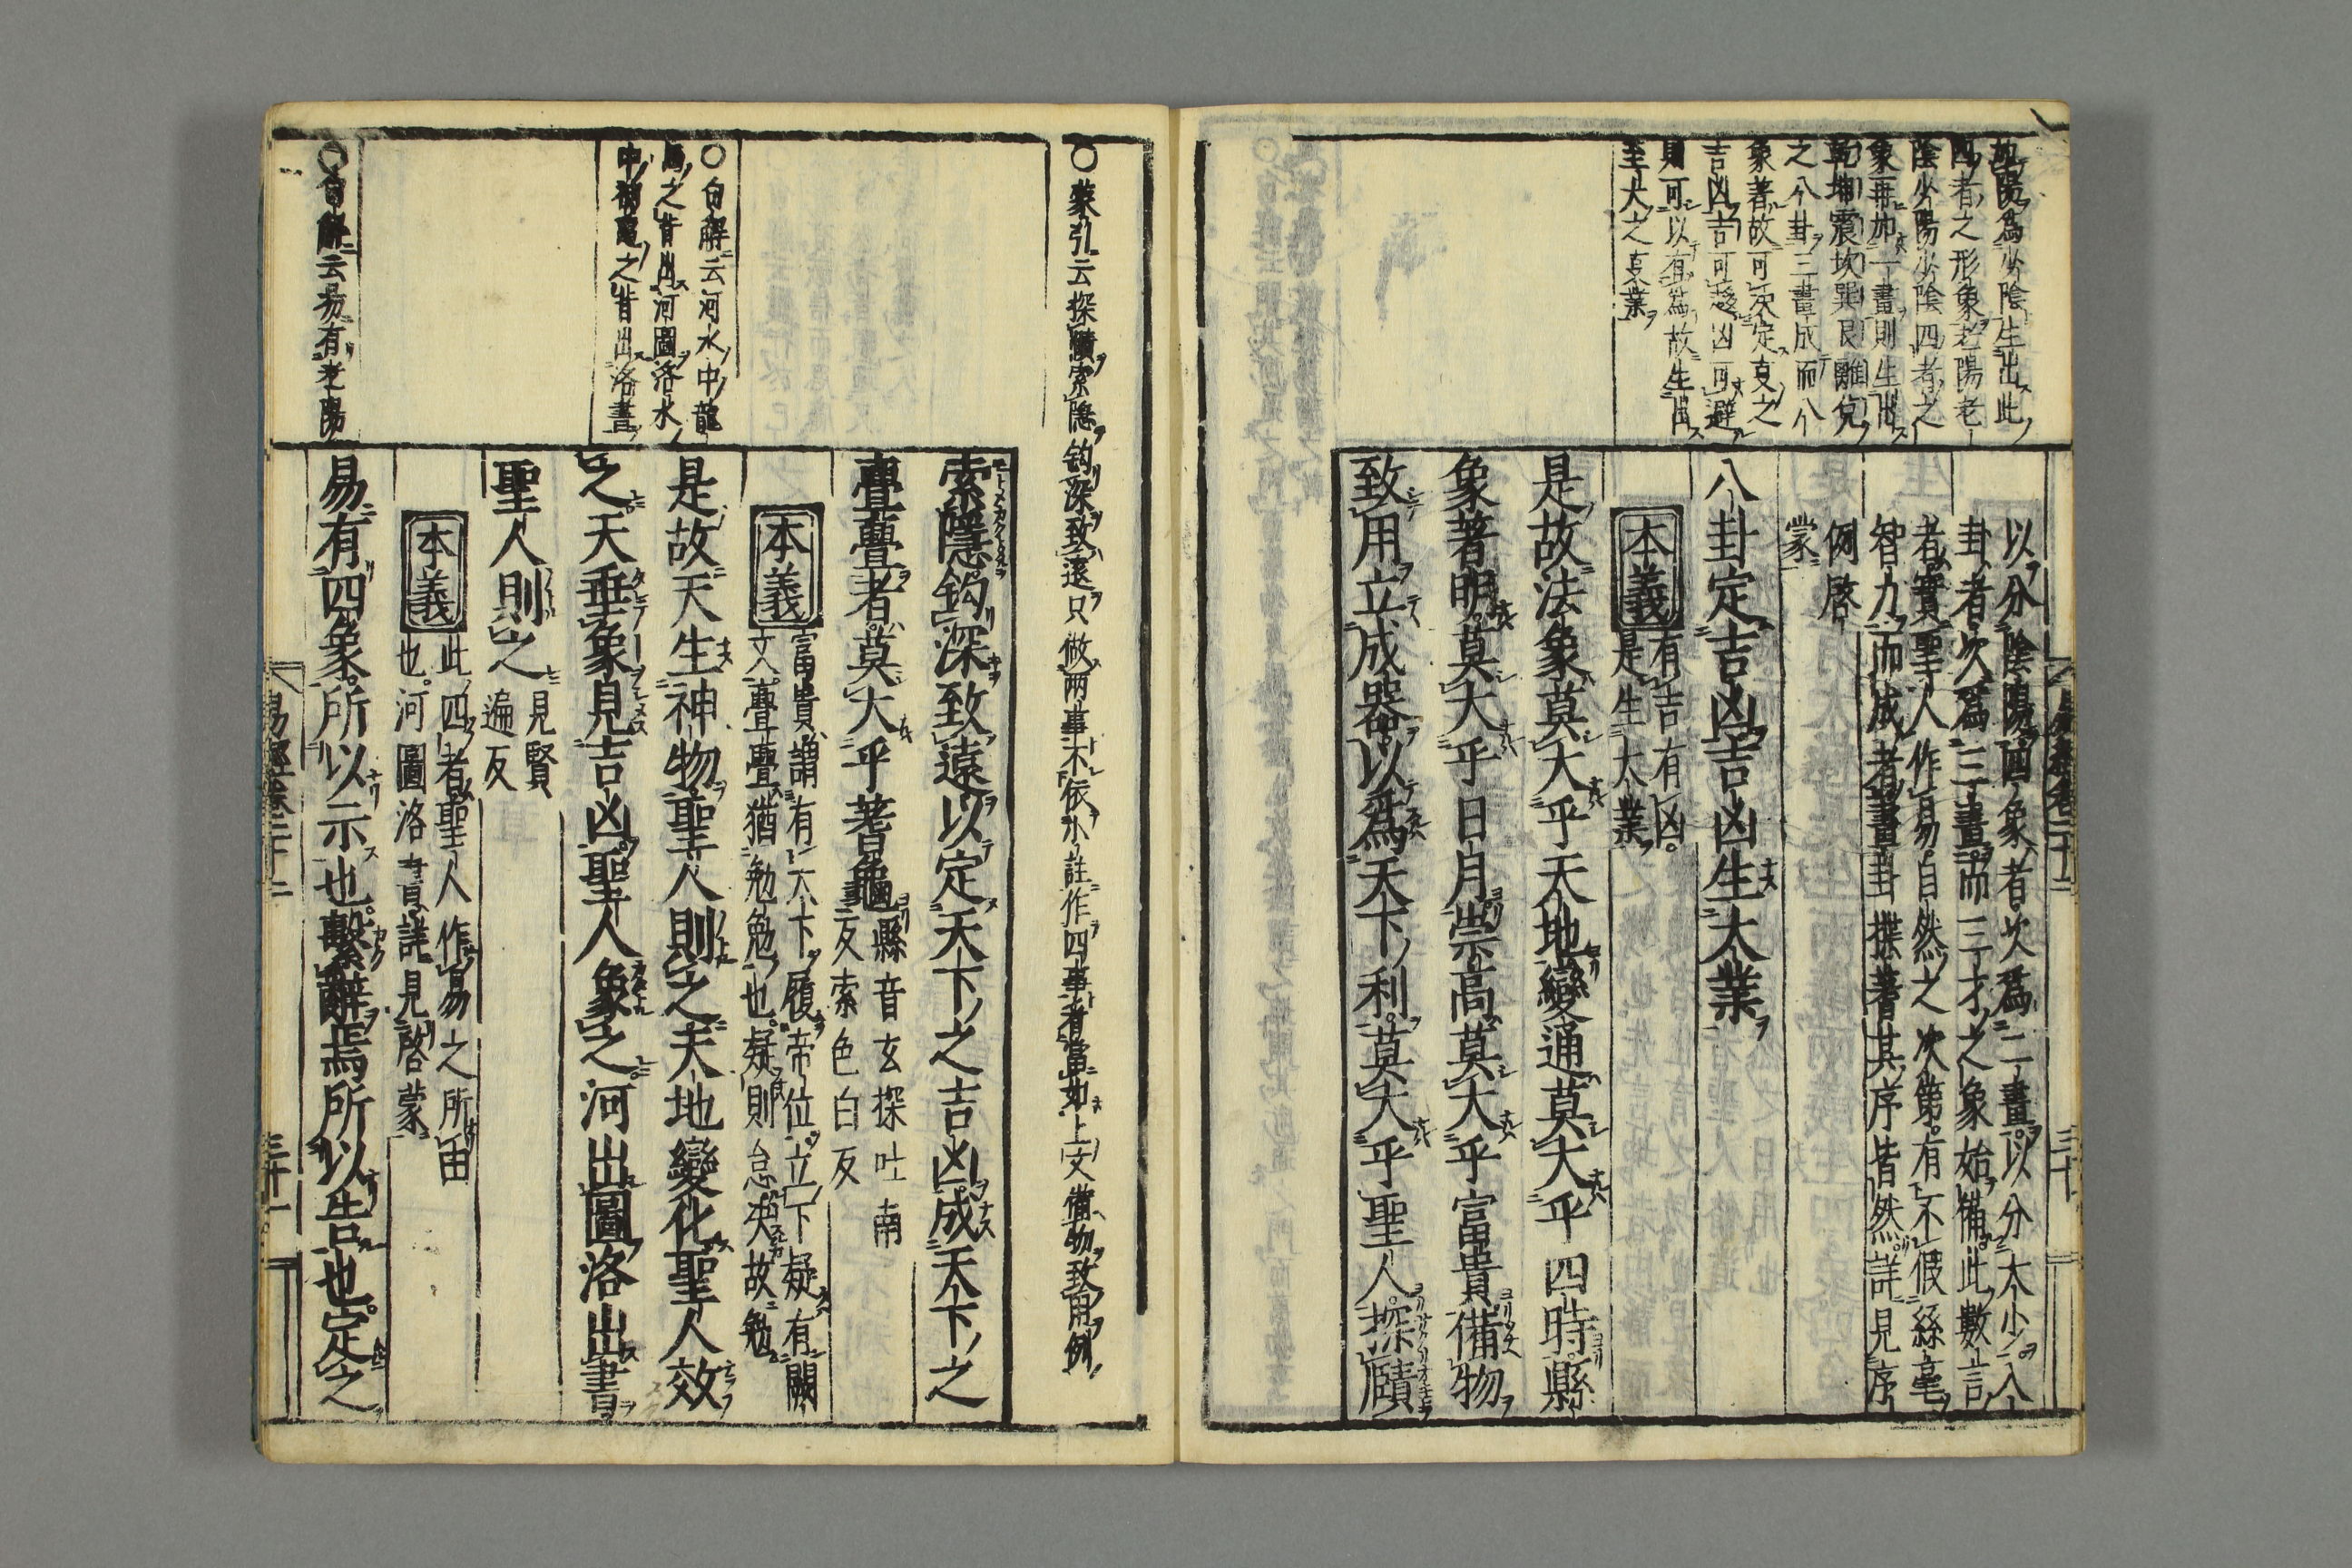 故陽爲少陰生出此
四者之形象老陽老
陰少陽少陰四者之
象再加一畫則生出
乾坤震坎巽艮離兌
之八卦三畫成而八
象著故可決定吏之
吉凶吉可趨凶可避
則可以有爲故生出
至大之吏業
以分陰陽四象者次爲二畫以分太少八
卦者次爲三畫而三才之象始備此數言
者實聖人作易自然之次第有不假絲毫
智力而成者畫卦揲蓍其序皆然詳見序
例啓
蒙
八卦定吉凶吉凶生大業
本義
有吉有凶
是生大業
是故法象莫大乎天地變通莫大乎四時縣
象著明莫大乎日月崇高莫大乎富貴備物
致用立成器以爲天下利莫大乎聖人探賾
○蒙引云探賾索隱鈎深致遠只做兩事不依小註作四事者當如上文備物致用例
索隱鈎深致遠以定天下之吉凶成天下之
亹亹者莫大乎蓍龜
縣音玄探吐南
反索色白反
本義
富貴謂有天下履帝位立下疑有闕
文亹亹猶勉勉也疑則怠決故勉
○白解云河水中龍
馬之背出河圖洛水
中神龜之背出洛書
是故天生神物聖人則之天地變化聖人效
之天垂象見吉凶聖人象之河出圖洛出書
聖人則之
見賢
遍反
本義
此四者聖人作易之所由
也河圖洛書詳見啓蒙
○白解云易有老陽
易有四象所以示也繫辭焉所以告也定之
易經卷二十二
三十一